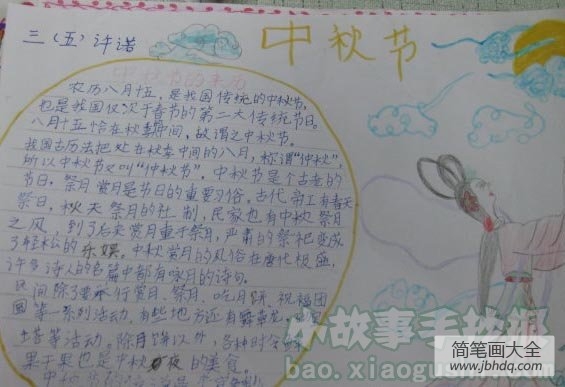 三（五）许诺
中秋节
中秋节的来历
农历八月十五，是我国传统的中秋节，
也是我国仅次于春节的第二大传统节日。
八月十五恰在秋季中间，故谓之中秋节。
我国古历法把处在秋季中间的八月，称谓"仲秋"，
所以中秋节又叫"仲秋节"。中秋节是个古老的
节日，祭月赏月是节日的重要习俗。古代帝王有春天
祭日，秋天祭月的社制，民家也有中秋祭月
之风，到了后来赏月重于祭月，严肃的祭祀变成
了轻松的乐娱。中秋赏月的风俗在唐代极盛，
许多诗人的名篇中都有咏月的诗句。
民间除了要举行赏月、祭月、吃月饼祝福团
圆等一系列活动，有些地方还有舞草龙，
塔等活动。除月饼以外，各种时令
果干果也是中秋夜的美食。
故事手抄报
bao.xiaogushi.com
简笔画大全
www.jbhdq.com